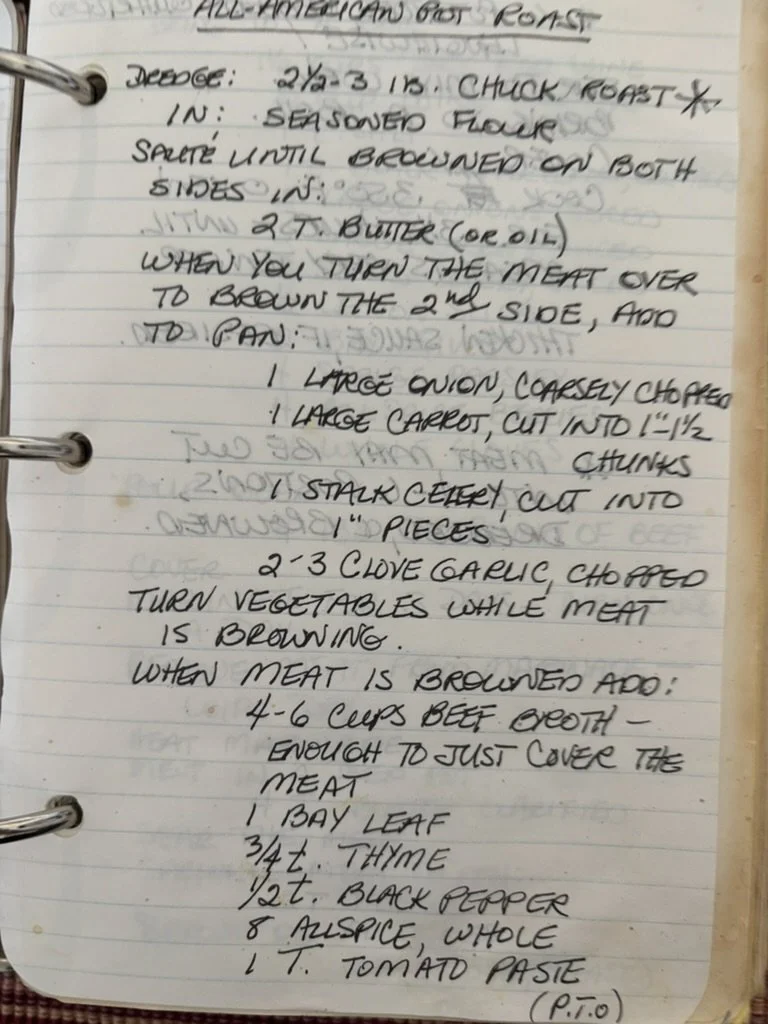 ALL-AMERICAN POT ROAST
DREDGE: 2½-3 lb. CHUCK ROAST *
IN: SEASONED FLOUR
SAUTÉ UNTIL BROWNED ON BOTH
SIDES IN:
2 T. BUTTER (OR OIL)
WHEN YOU TURN THE MEAT OVER
TO BROWN THE 2nd SIDE, ADD
TO PAN:
1 LARGE ONION, COARSELY CHOPPED
1 LARGE CARROT, CUT INTO 1"-1½
CHUNKS
1 STALK CELERY, CUT INTO
1" PIECES
2-3 CLOVE GARLIC, CHOPPED
TURN VEGETABLES WHILE MEAT
IS BROWNING.
WHEN MEAT IS BROWNED ADD:
4-6 CUPS BEEF BROTH -
ENOUGH TO JUST COVER THE
MEAT
1 BAY LEAF
3/4 t. THYME
1/2 t. BLACK PEPPER
8 ALLSPICE, WHOLE
1 T. TOMATO PASTE
(P.T.O)